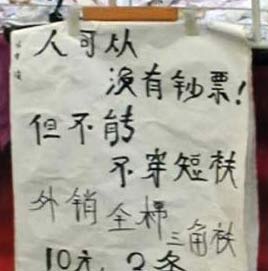 人可以
没有钞票!
但不能
不穿短裤
外销全棉
三角裤
10元 3条